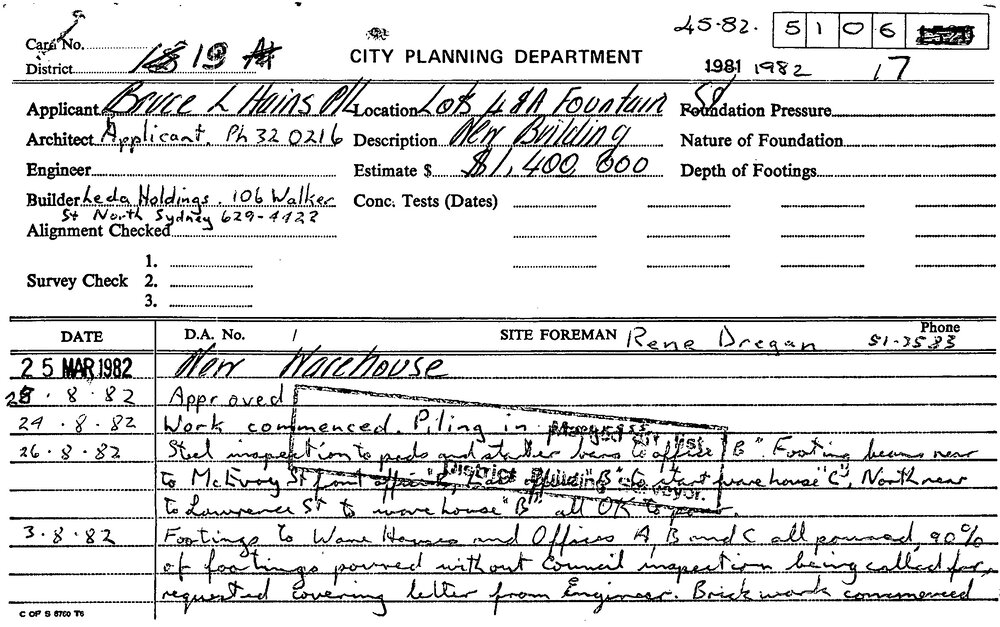 45-82. 5106
Card No.
District 19
CITY PLANNING DEPARTMENT
1981 1982 17
Applicant Bruce L Hains P/L Location Lots 4 8A Fountain St Foundation Pressure
Architect Applicant. Ph 32 0216 Description New Building Nature of Foundation
Engineer Estimate $ $1,400,000 Depth of Footings
Builder Leda Holdings. 106 Walker Conc. Tests (Dates)
St North Sydney 629-4422
Alignment Checked
1.
Survey Check 2.
3.
DATE D.A. No. SITE FOREMAN Rene Dregan Phone 51-3583
25 MAR 1982 New Warehouse
8.82 Approved
24.8.82 Work commenced. Piling in progress.
26.8.82 Steel inspection to pads and starter bars to office "B" Footing beams near
to McEvoy St front office East office "B" to start warehouse "C", North near
to Lawrence St to warehouse "B" all OK to pour.
District Surveyor.
3.8.82 Footings to Ware Houses and Offices A, B and C all poured, 90%
of footings poured without Council inspection being called for,
requested covering letter from Engineer. Brick work commenced
C OF S 8760 T6